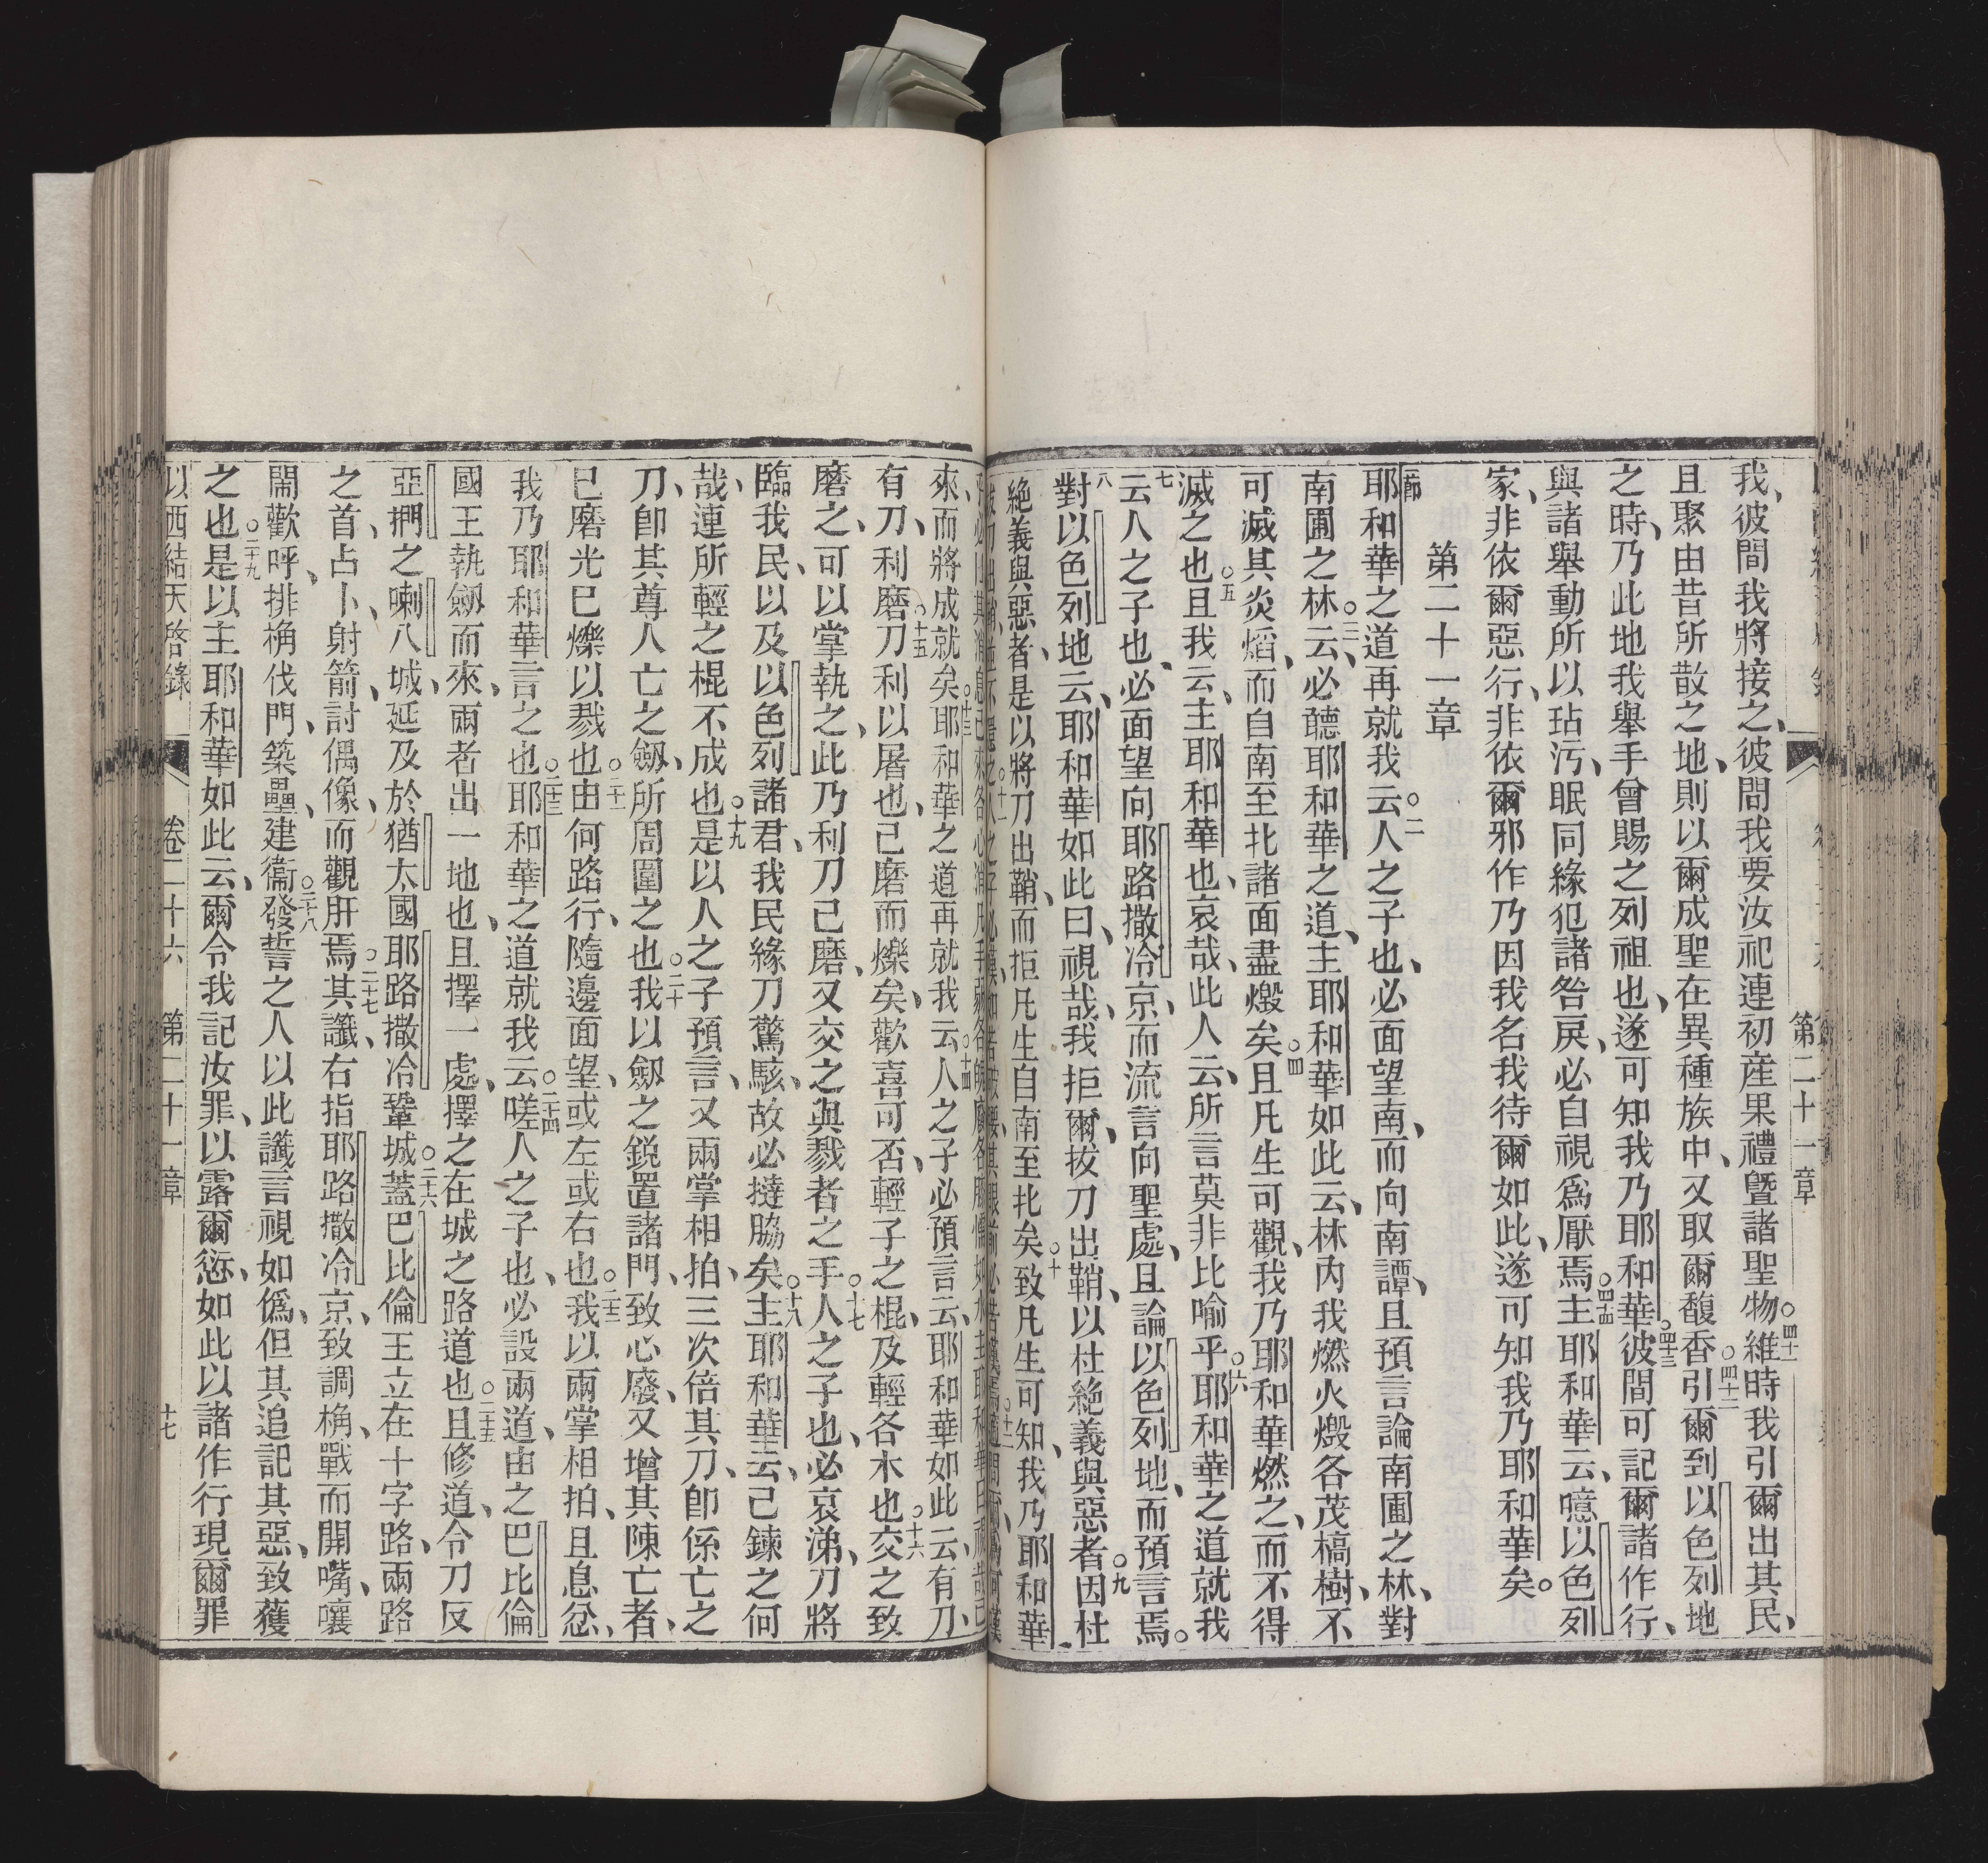 第二十一章
我、彼間我將接之、彼問我要汝祀連初産果禮曁諸聖物○四十一維時我引爾出其民、
且聚由昔所散之地、則以爾成聖在異種族中、又取爾馥香○四十二引爾到以色列地
之時、乃此地我舉手曾賜之列祖也、遂可知我乃耶和華○四十三彼間可記爾諸作行、
與諸舉動所以玷汚、眠同緣犯諸咎戾、必自視爲厭焉○四十四主耶和華云、噫以色列
家、非依爾惡行、非依爾邪作乃因我名我待爾如此、遂可知我乃耶和華矣。
第二十一章
耶和華之道再就我云○二人之子也、必面望南、而向南譚、且預言論南圃之林、對
南圃之林○三云、必聽耶和華之道、主耶和華如此云、林內我燃火燬各茂槁樹、不
可滅其炎熖、而自南至北諸面盡燬矣○四且凡生可觀、我乃耶和華燃之、而不得
滅之也○五且我云、主耶和華也、哀哉、此人云、所言莫非比喻乎○六耶和華之道就我
七云人之子也、必面望向耶路撒冷京、而流言向聖處、且論以色列地、而預言焉。
八對以色列地云、耶和華如此曰、視哉、我拒爾、拔刀出鞘、以杜絶義與惡者○九因杜
絶義與惡、者是以將刀出鞘、而拒凡生自南至北矣○十致凡生可知、我乃耶和華
來、而將成就矣○十三耶和華之道再就我云○十四人之子必預言云、耶和華如此云有刀、
有刀、利磨刀○十五利以屠也、己磨而爍矣、歡喜可否、輕子之棍、及輕各木也○十六交之致
磨之、可以掌執之、此乃利刀己磨、又交之與戮者之手○十七人之子也、必哀涕、刀將
臨我民、以及以色列諸君、我民緣刀驚駭、故必撻脇矣○十八主耶和華云、己鍊之何
哉、連所輕之棍不成也○十九是以人之子預言、又兩掌相拍、三次倍其刀、卽係亡之
刀、卽其尊人亡之劒、所周圍之也○二十我以劒之銳置諸門、致心廢、又增其陳亡者、
已磨光已爍以戮也○二十一由何路行、隨邊面望、或左或右也○二十二我以兩掌相拍、且息忿、
我乃耶和華言之也○二十三耶和華之道就我云○二十四嗟人之子也、必設兩道、由之巴比倫
國王執劒而來、兩者出一地也、且擇一處、擇之在城之路道也○二十五且修道、令刀反
亞捫之喇八城、延及於猶太國耶路撒冷鞏城○二十六蓋巴比倫王立在十字路、兩路
之首、占卜、射箭、討偶像、而觀肝焉○二十七其讖、右指耶路撒冷京、致調桷、戰而開嘴、嚷
鬧歡呼、排桷伐門、築壘、建衞○二十八發誓之人以此讖言視如僞、但其追記其惡、致獲
之也○二十九是以主耶和華如此云、爾令我記汝罪、以露爾愆、如此以諸作行現爾罪
以西結天啓錄　卷二十六　第二十一章　十七